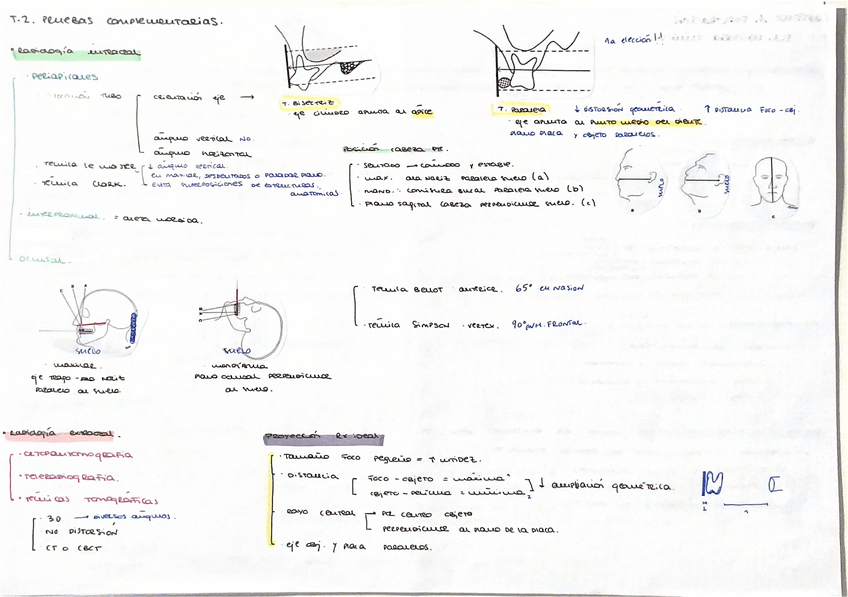 T.2. PRUEBAS COMPLEMENTARIAS.
· RADIOLOGÍA INTRAORAL
· PERIAPICALES
TUBO
ORIENTACIÓN EJE →
ÁNGULO VERTICAL NO.
ÁNGULO HORIZONTAL
· TÉCNICA LE MASTER
↓ ÁNGULO VERTICAL
EN MAXILAR, DESDENTADOS O PALADAR PLANO.
EVITA SUPERPOSICIONES DE ESTRUCTURAS ANATÓMICAS
· TÉCNICA CLARK.
· INTERPROXIMAL = ALETA MORDIDA.
OCLUSAL.
T. BISECTRIZ
· EJE CILINDRO APUNTA AL ÁPICE
1a elección!!
T. PARALELA ↓ DISTORSIÓN GEOMÉTRICA ↑ DISTANCIA FOCO-OBJ.
· EJE APUNTA AL PUNTO MEDIO DEL DIENTE.
PLANO PLACA Y OBJETO PARALELOS.
POSICIÓN CABEZA PTE.
· SENTADO → CÓMODO Y ESTABLE.
· MAX. ALA NARIZ PARALELA SUELO (a)
· MAND. COMISURA BUCAL PARALELA SUELO (b)
· PLANO SAGITAL CABEZA PERPENDICULAR SUELO. (c)
SUELO
SUELO
a
b
c
C B A
SUELO
· MAXILAR.
EJE TRAGO - NARIZ
PARALELO AL SUELO
SUELO
· MANDÍBULA
PLANO OCLUSAL PERPENDICULAR
AL SUELO.
· TÉCNICA BELOT ANTERIOR. 65° EN NASION
· TÉCNICA SIMPSON VERTEX. 90° FRONTAL
· RADIOLOGÍA EXTRAORAL.
· ORTOPANTOMOGRAFÍA
· TELERADIOGRAFÍA.
· TÉCNICAS TOMOGRÁFICAS
· 3D → DIVERSOS ÁNGULOS.
NO DISTORSIÓN
CT O CBCT
PROYECCIÓN RX IDEAL
· TAMAÑO FOCO PEQUEÑO = ↑ NITIDEZ.
· DISTANCIA
FOCO - OBJETO = MÁXIMA 1
OBJETO - PELÍCULA = MÍNIMA 2
↓ AMPLIACIÓN GEOMÉTRICA.
RAYO CENTRAL → POR CENTRO OBJETO
PERPENDICULAR AL PLANO DE LA PLACA.
· EJE OBJ. Y PLACA PARALELOS.